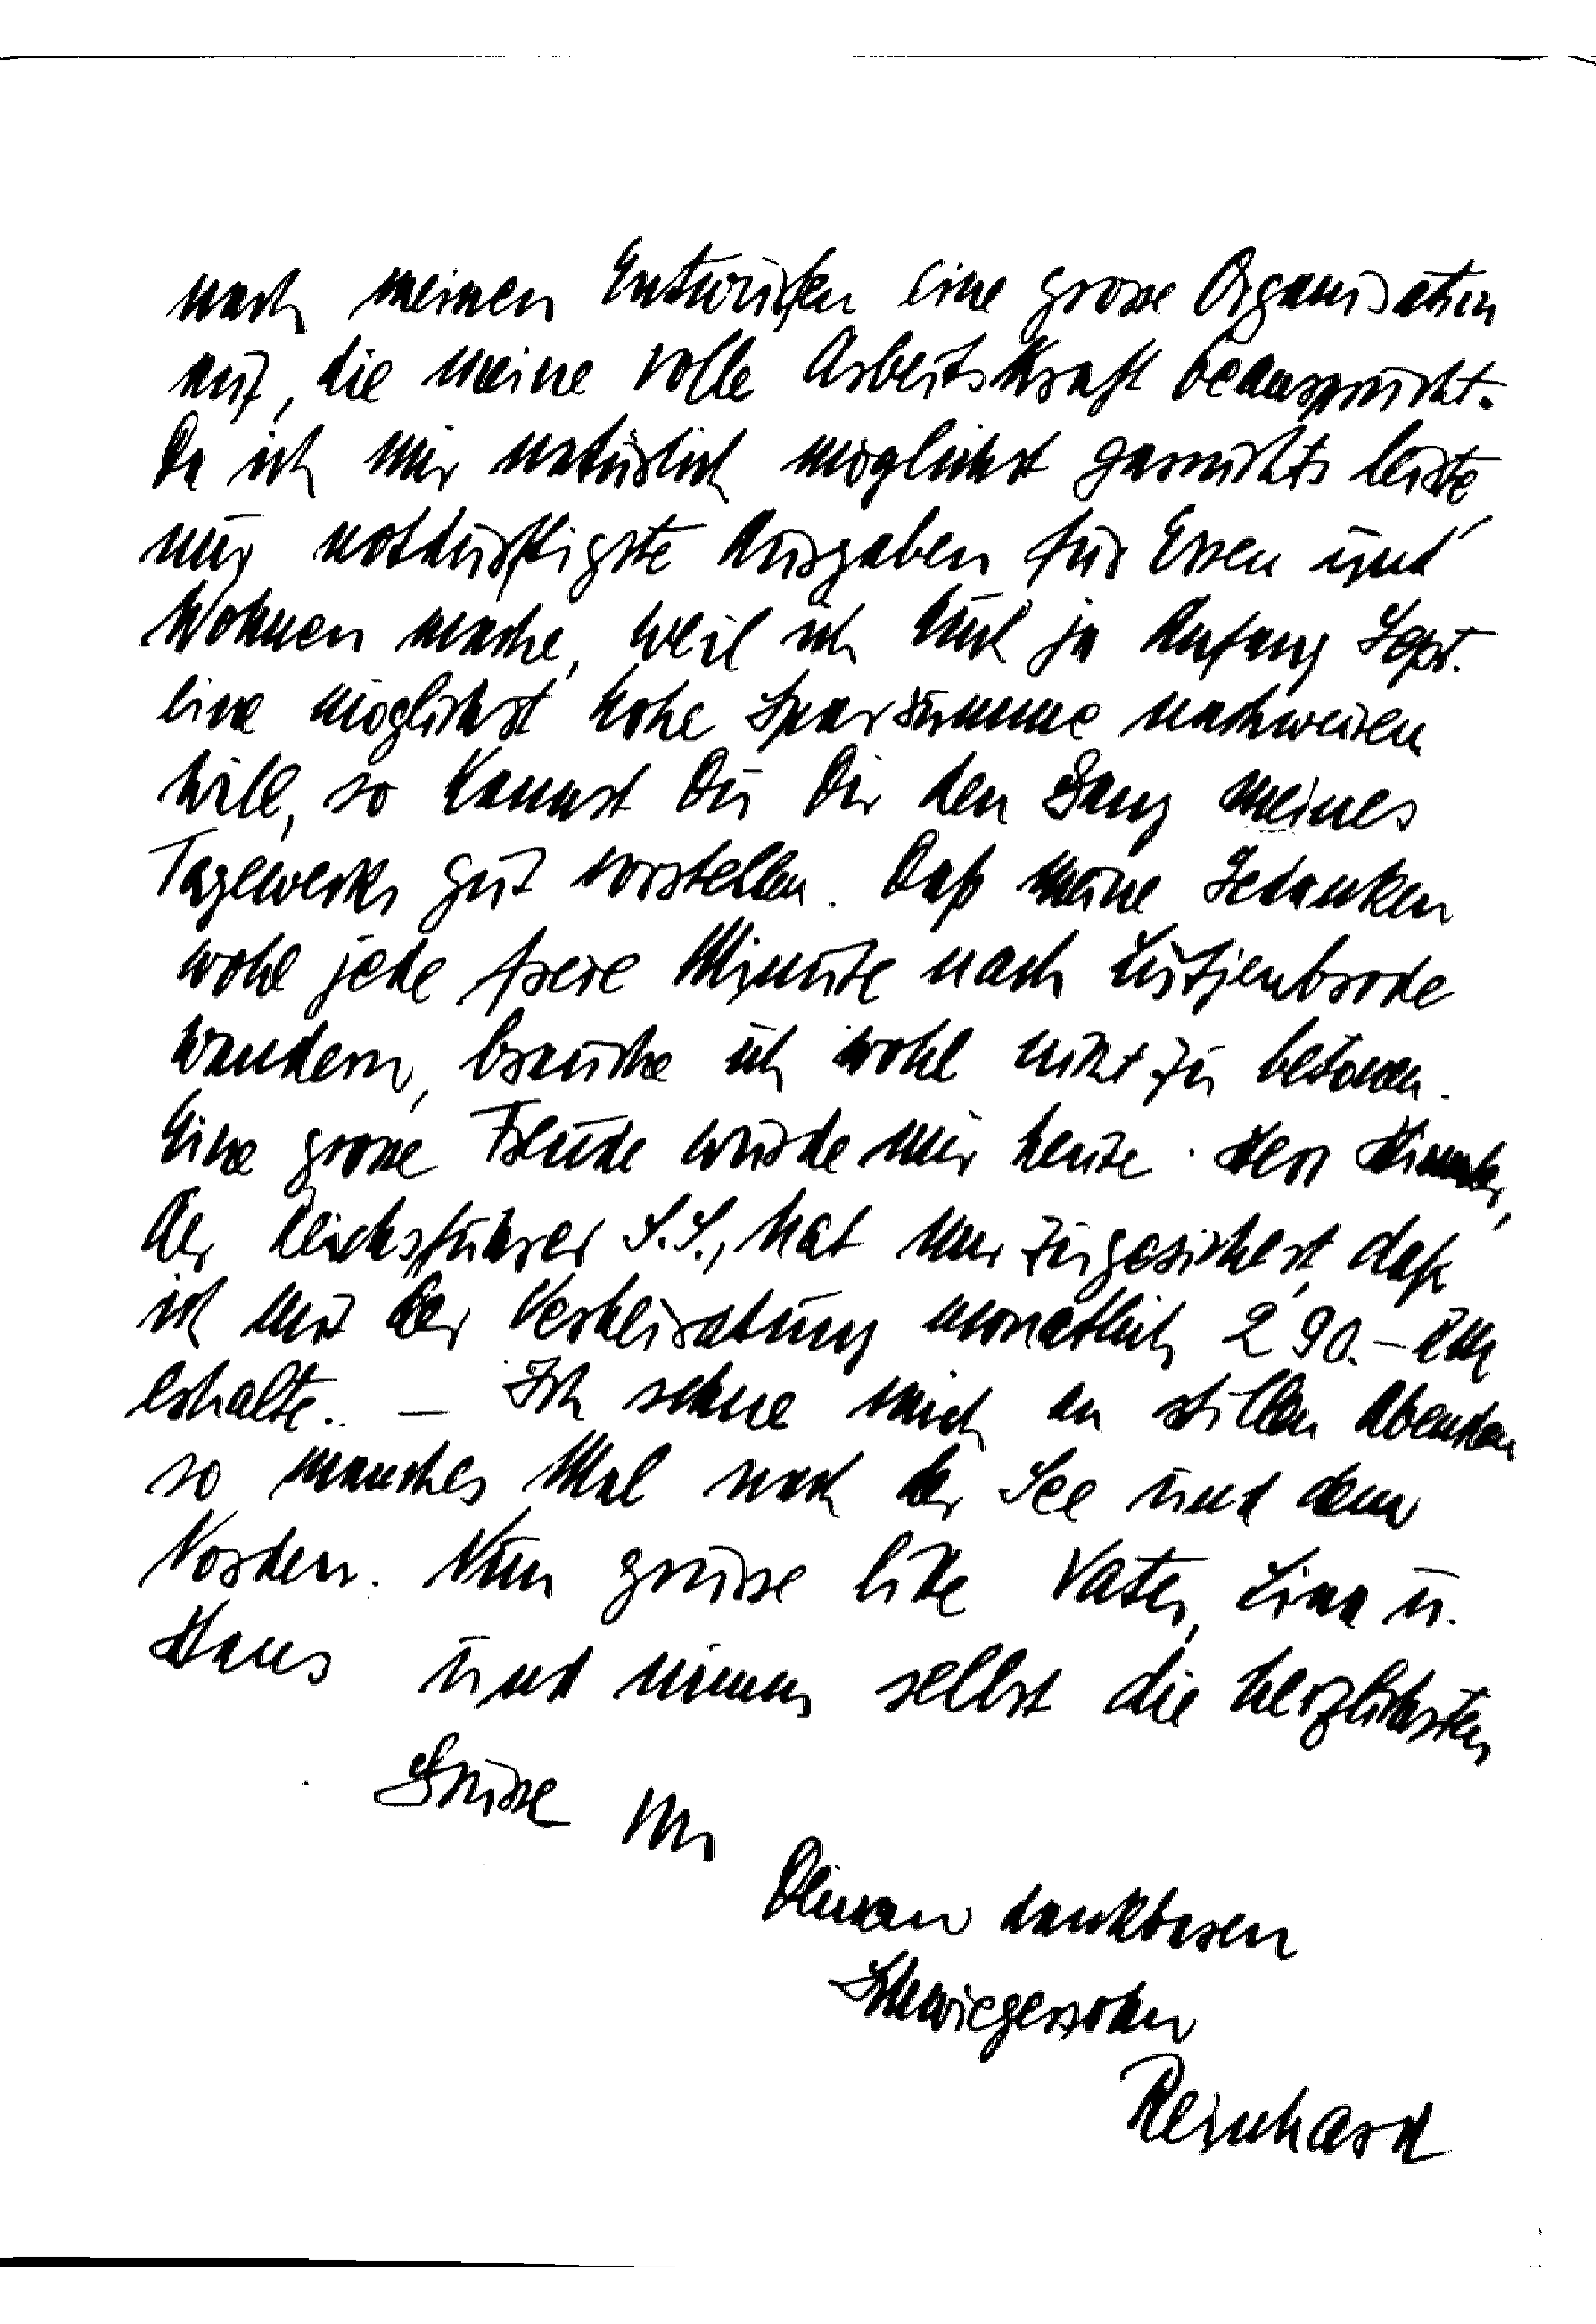 nach meinen Entwürfen eine grosse Organisation
auf, die meine volle Arbeitskraft beansprucht.
Da ich mir natürlich möglichst garnichts leiste
nur notdürftigste Ausgaben für Essen und
Wohnen mache, weil ich Euch ja Anfang Sept.
eine möglichst hohe Sparsumme nachweisen
will, so kannst Du Dir den Gang meines
Tagewerks gut vorstellen. Daß meine Gedanken
wohl jede freie Minute nach Lütjenbrode
wandern, brauche ich wohl nicht zu betonen.
Eine grosse Freude wurde mir heute. Herr Himmler,
der Reichsführer S.S., hat mir zugesichert, daß
ich mit der Verheiratung monatlich 290.– RM
erhalte. – Ich sehne mich an stillen Abenden
so manches Mal nach der See und dem
Norden. Nun grüsse bitte Vater, Lina u.
Hans und nimm selbst die herzlichsten
Grüsse von
Deinem dankbaren
Schwiegersohn
Reinhard